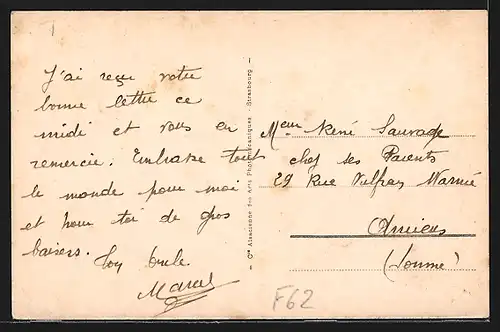 J'ai reçu votre
bonne lettre ce
midi et vous en
remercie. Embrasse tout
le monde pour moi
et pour toi de gros
baisers.
Marcel
Cie Alsacienne des Arts Photomécaniques - Strasbourg
Meur René Sauvage
chef ses Parents
29 Rue Vulfran Warmé
Amiens
(Somme)
F62